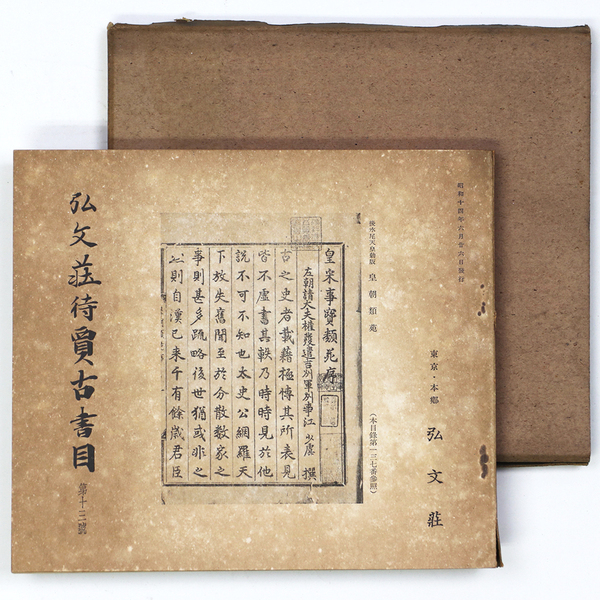 昭和十四年六月廿六日發行
東京・本郷
弘文莊
後水尾天皇勅版 皇朝類苑
(本目錄第一三七番參照)
皇宋事寶類苑序
左朝請大夫權發遣吉州軍州事江少虞撰
古之史者載籍極博其所表見
皆不虛書其軼乃時時見於他
說不可不知也太史公網羅天
下放失舊聞至於分散數家之
事則甚多疏略後世猶或非之
之則自漢已来千有餘歲君臣
弘文莊待賈古書目
第十三號